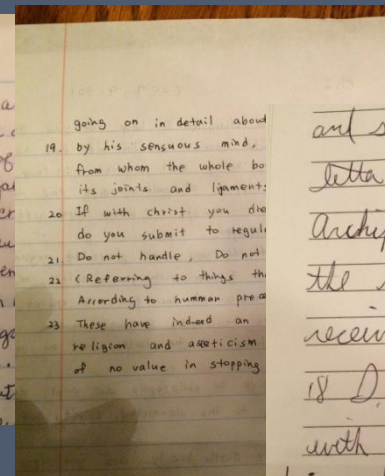 going on in detail about
19. by his sensuous mind.
from whom the whole bo
its joints and ligaments
20 If with christ you die
do you submit to regul
21. Do not handle, Do not
22 (Referring to things th
According to humman prece
23 These have indeed an
religion and asceticism
of no value in stopping
and s
letta
Archip
the s
receiv
18 D
with